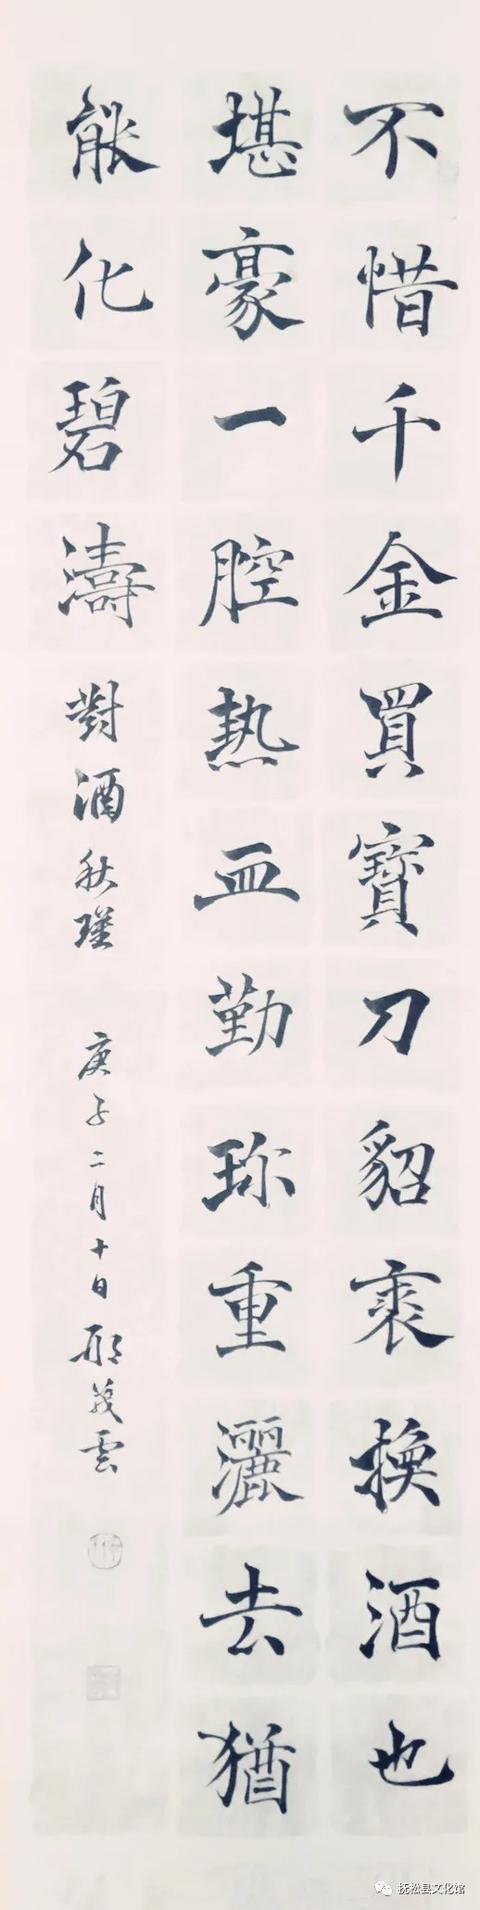 不惜千金買寶刀貂裘換酒也
堪豪一腔熱血勤珎重灑去猶
能化碧濤對酒秋瑾 庚子二月十日邢茂雲
抚松县文化馆